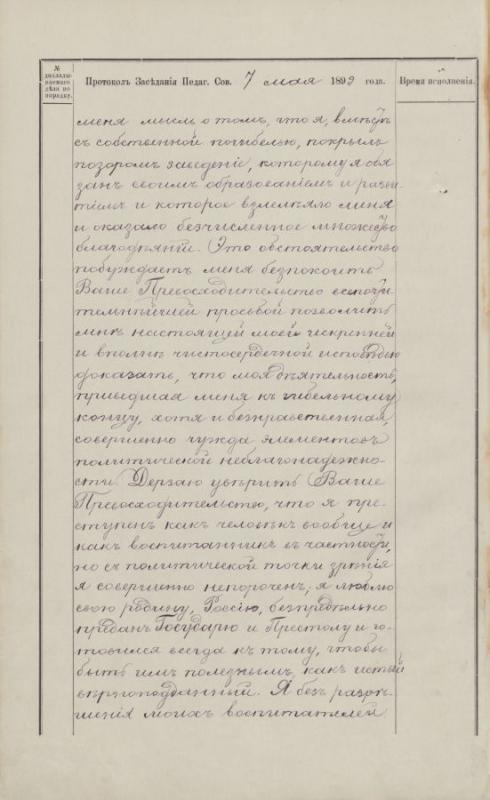 №
докладываемаго
дѣла по
порядку.
Протоколъ Засѣданія Педаг. Сов. 7 мая 1893 года.
Время исполненія.
меня мысль о томъ, что я, вмѣстѣ
съ собственной погибелью, покрылъ
позоромъ заведеніе, которому я обя
занъ своимъ образованіемъ и разви
тіемъ и которое взлелѣяло меня
и оказало безчисленное множество
благодѣяній. Это обстоятельство
побуждаетъ меня безпокоить
Ваше Превосходительство всепочти
тельнѣйшей просьбой позволить
мнѣ настоящей моей искренней
и вполнѣ чистосердечной исповѣдью
доказать, что моя дѣятельность,
приведшая меня къ гибельному
концу, хотя и безнравственная,
совершенно чужда элементовъ
политической неблагонадежно-
сти. Дерзаю увѣрить Ваше
Превосходительство, что я пре-
ступенъ какъ человѣкъ вообще и
какъ воспитанникъ въ частности,
но съ политической точки зрѣнія
я совершенно непороченъ; я люблю
свою родину, Россію, безпредѣльно
преданъ Государю и Престолу и го-
товился всегда къ тому, чтобы
быть имъ полезнымъ, какъ истый
вѣрноподданный. Я безъ разрѣ-
шенія моихъ воспитателей